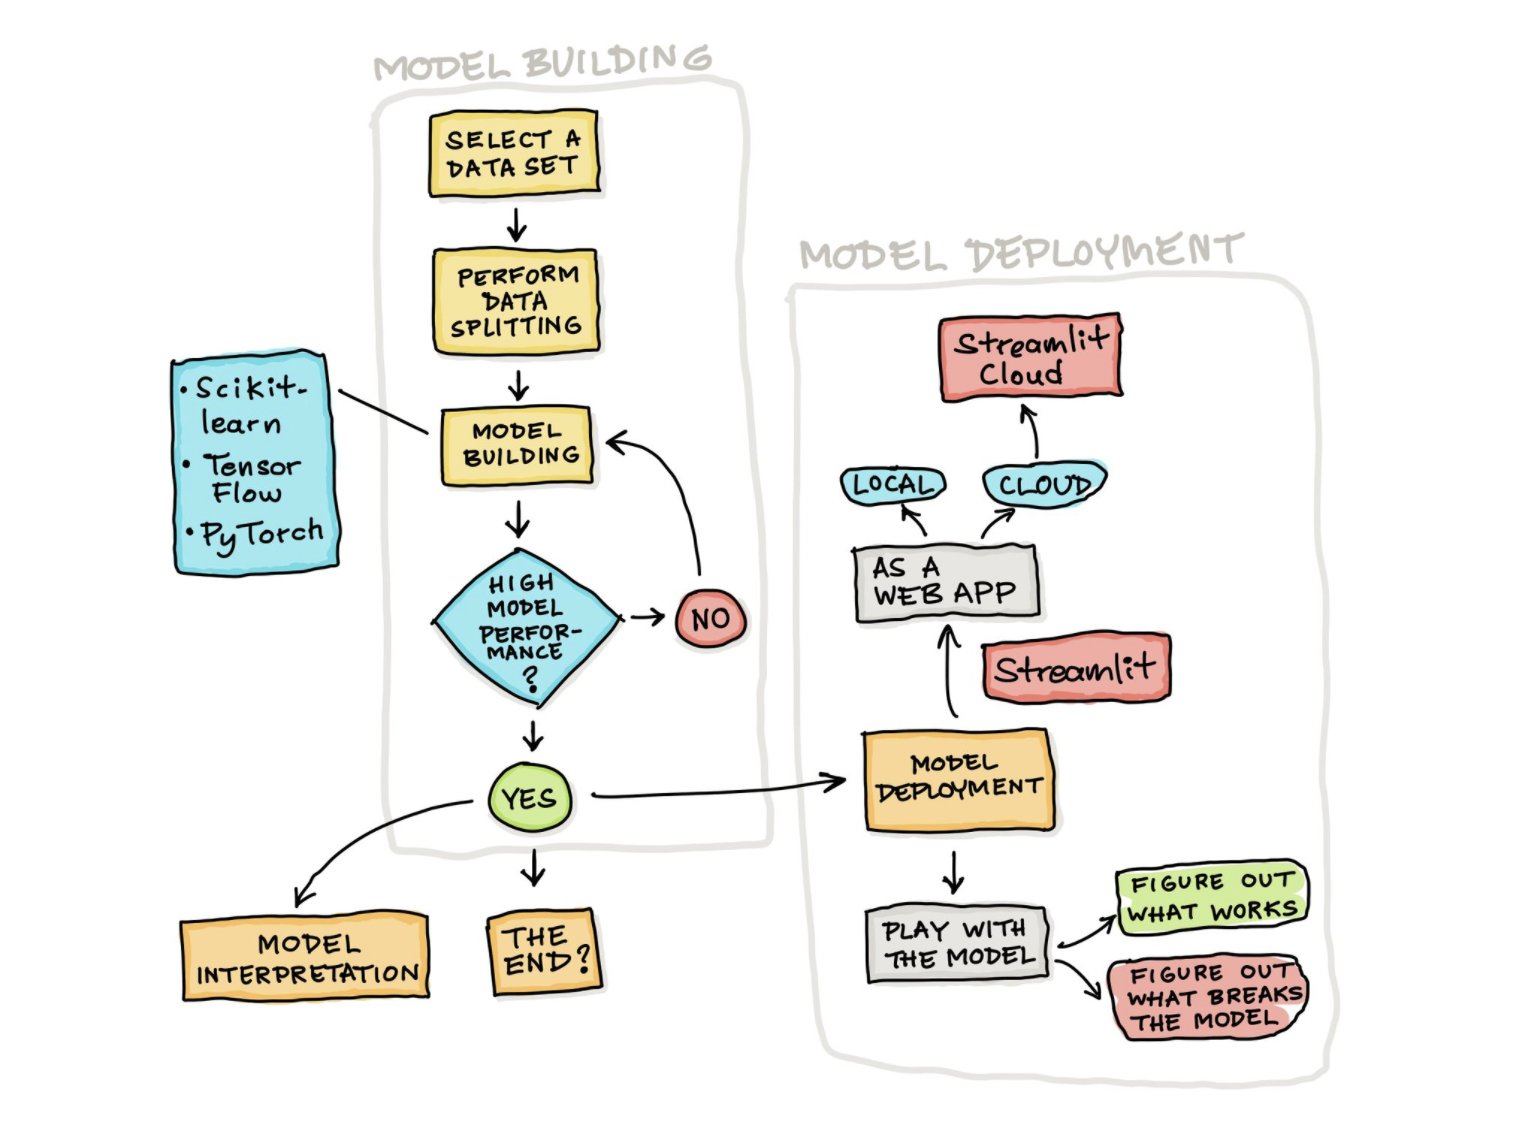 MODEL BUILDING
SELECT A
DATA SET
PERFORM
DATA
SPLITTING
• Scikit-
learn
• Tensor
Flow
• PyTorch
MODEL
BUILDING
HIGH
MODEL
PERFOR-
MANCE
?
NO
YES
MODEL
INTERPRETATION
THE
END?
MODEL DEPLOYMENT
Streamlit
Cloud
LOCAL
CLOUD
AS A
WEB APP
Streamlit
MODEL
DEPLOYMENT
PLAY WITH
THE MODEL
FIGURE OUT
WHAT WORKS
FIGURE OUT
WHAT BREAKS
THE MODEL